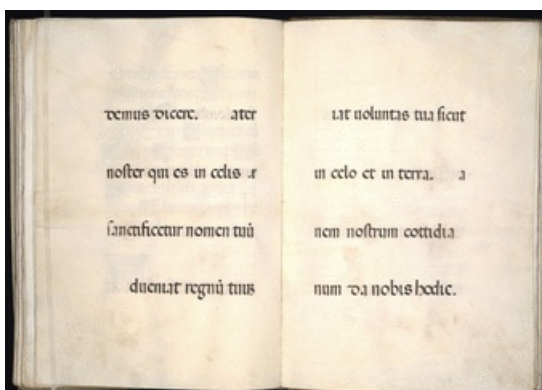 demus dicere. ater
noster qui es in celis .r
sanctificetur nomen tuū
dueniat regnū tuus
iat voluntas tua sicut
in celo et in terra. a
nem nostrum cottidia
num da nobis hodie.